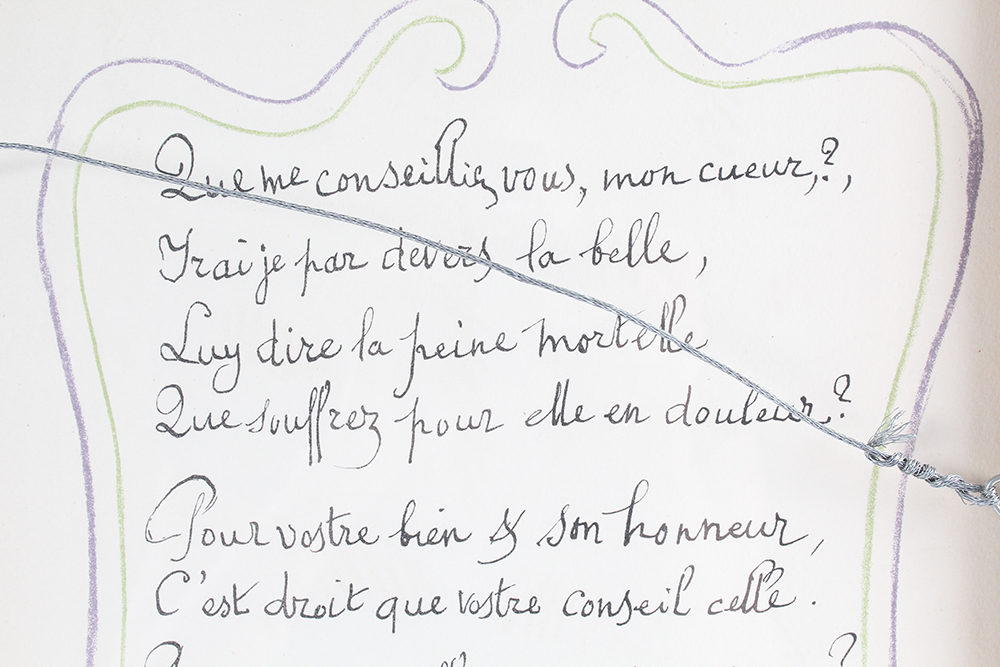 Que me conseilliez vous, mon cueur,?,
Irai je par devers la belle,
Luy dire la peine mortelle
Que souffrez pour elle en douleur,?
Pour vostre bien & son honneur,
C'est droit que vostre conseil celle.